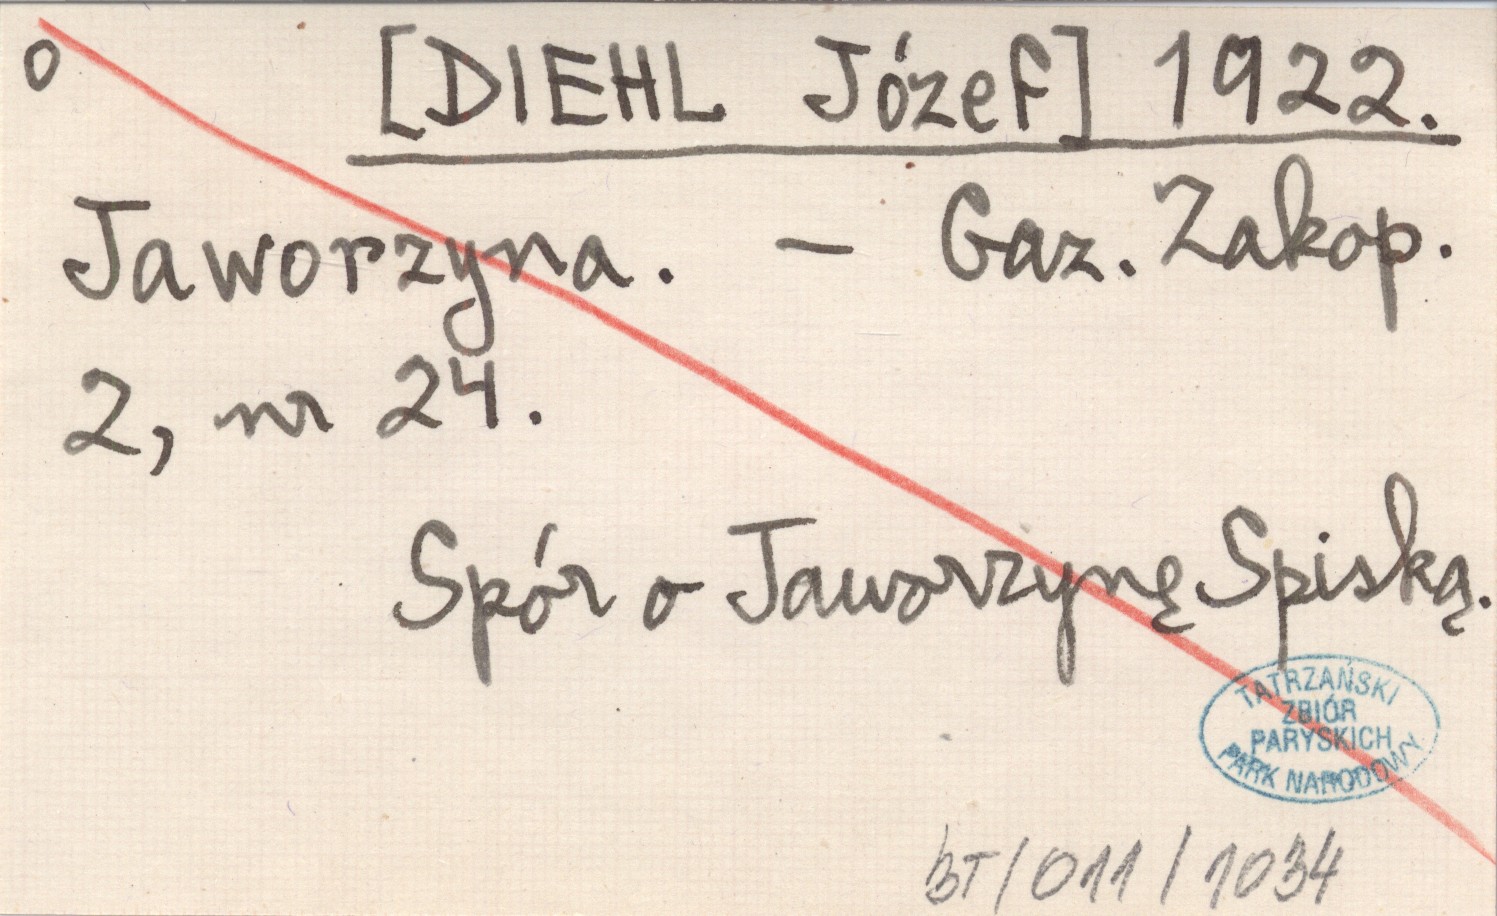 o
[DIEHL Józef] 1922.
Jaworzyna. – Gaz. Zakop.
2, nr 24.
Spór o Jaworzynę Spiską.
TATRZAŃSKI
ZBIÓR
PARYSKICH
PARK NARODOWY
BT/011/1034